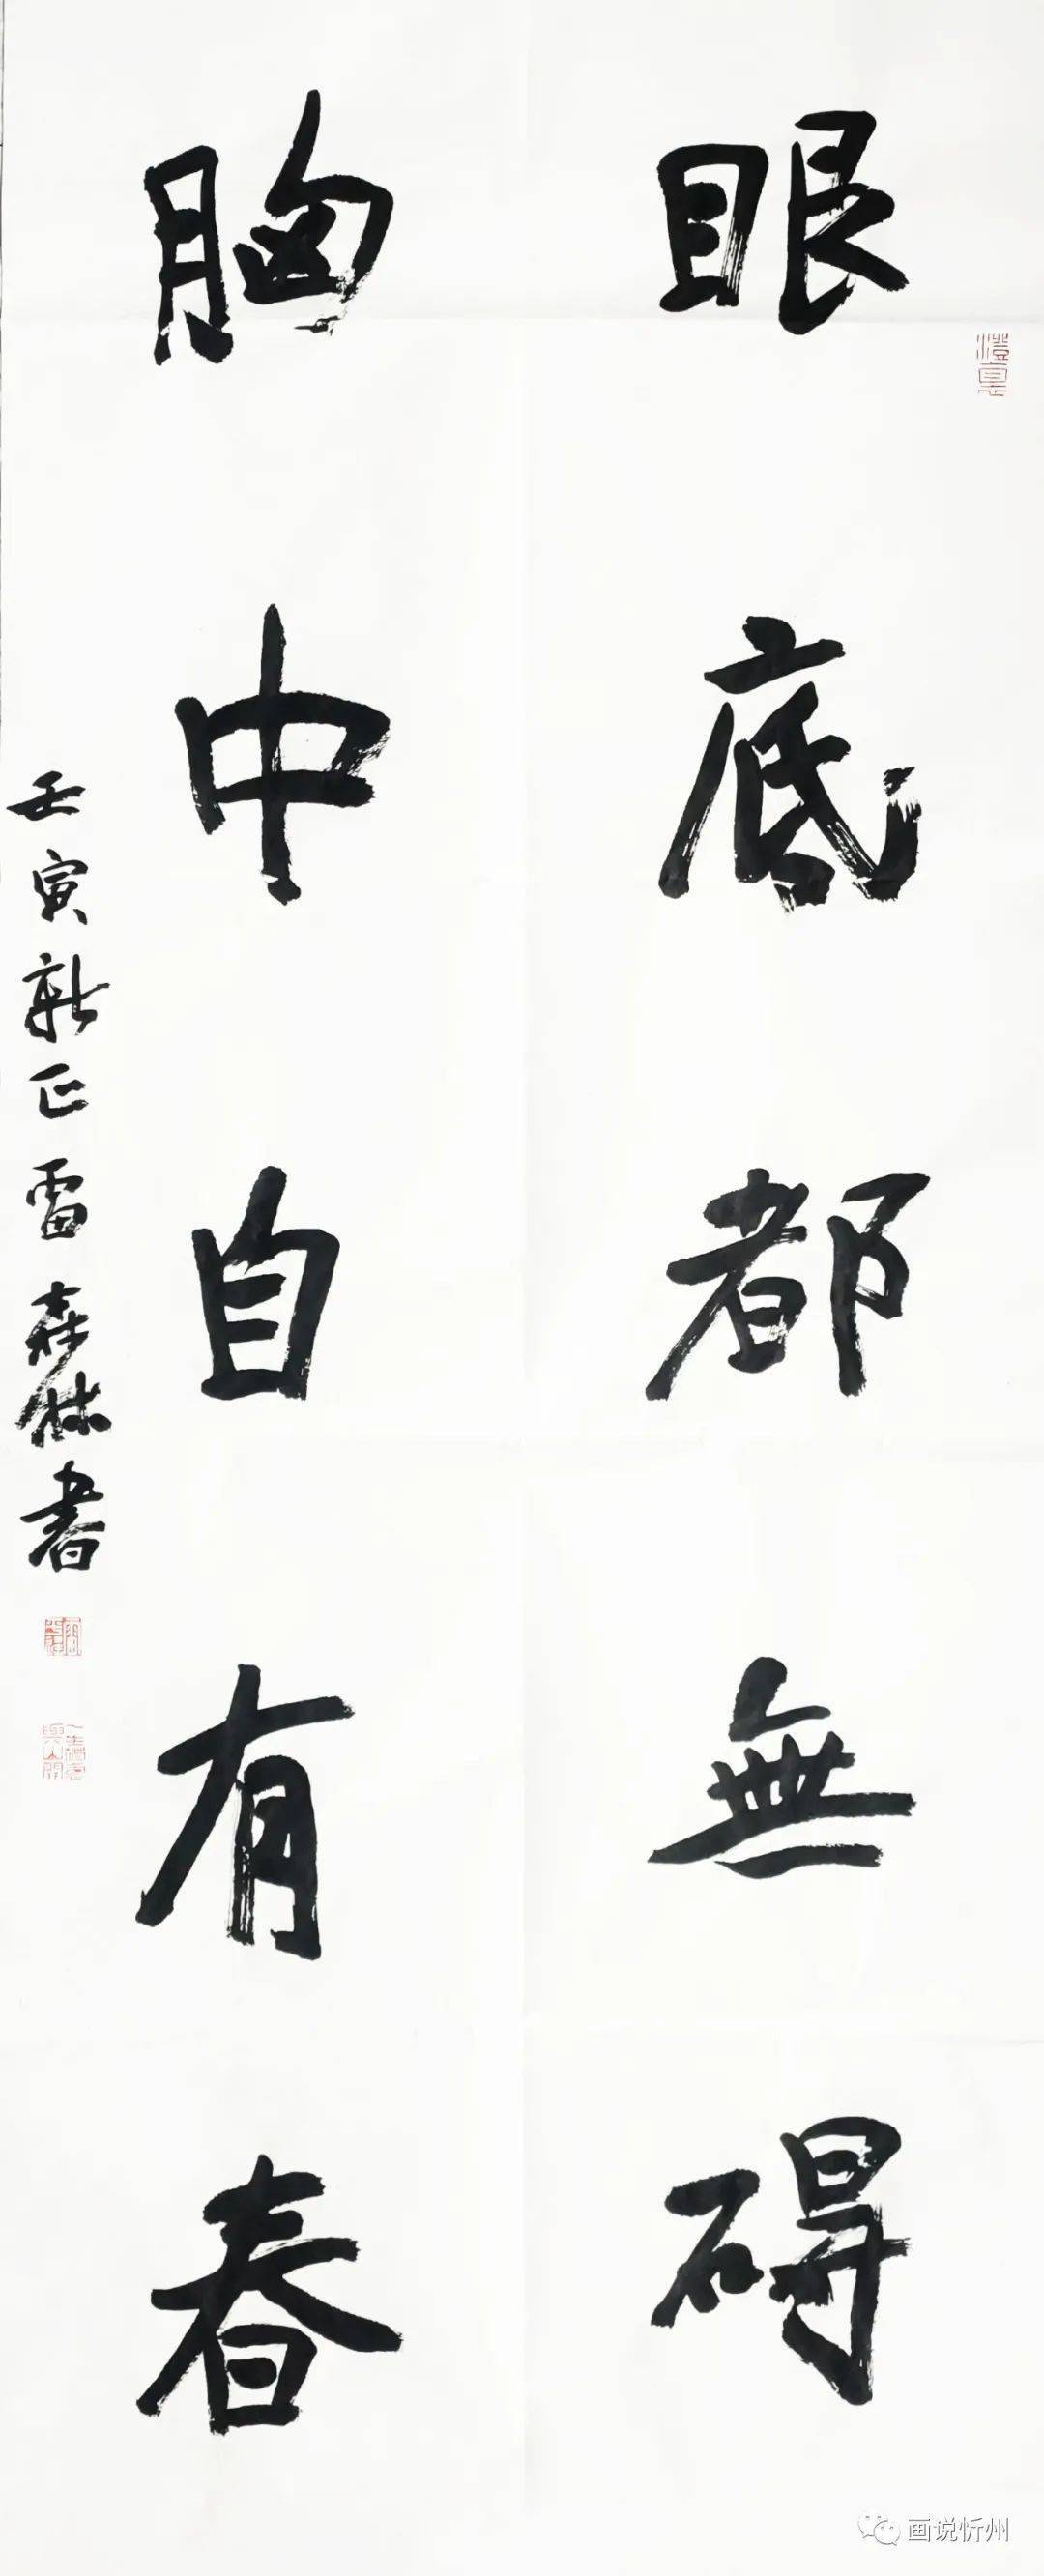 眼底都無碍
胸中自有春
壬寅新正雷森林書
画说忻州